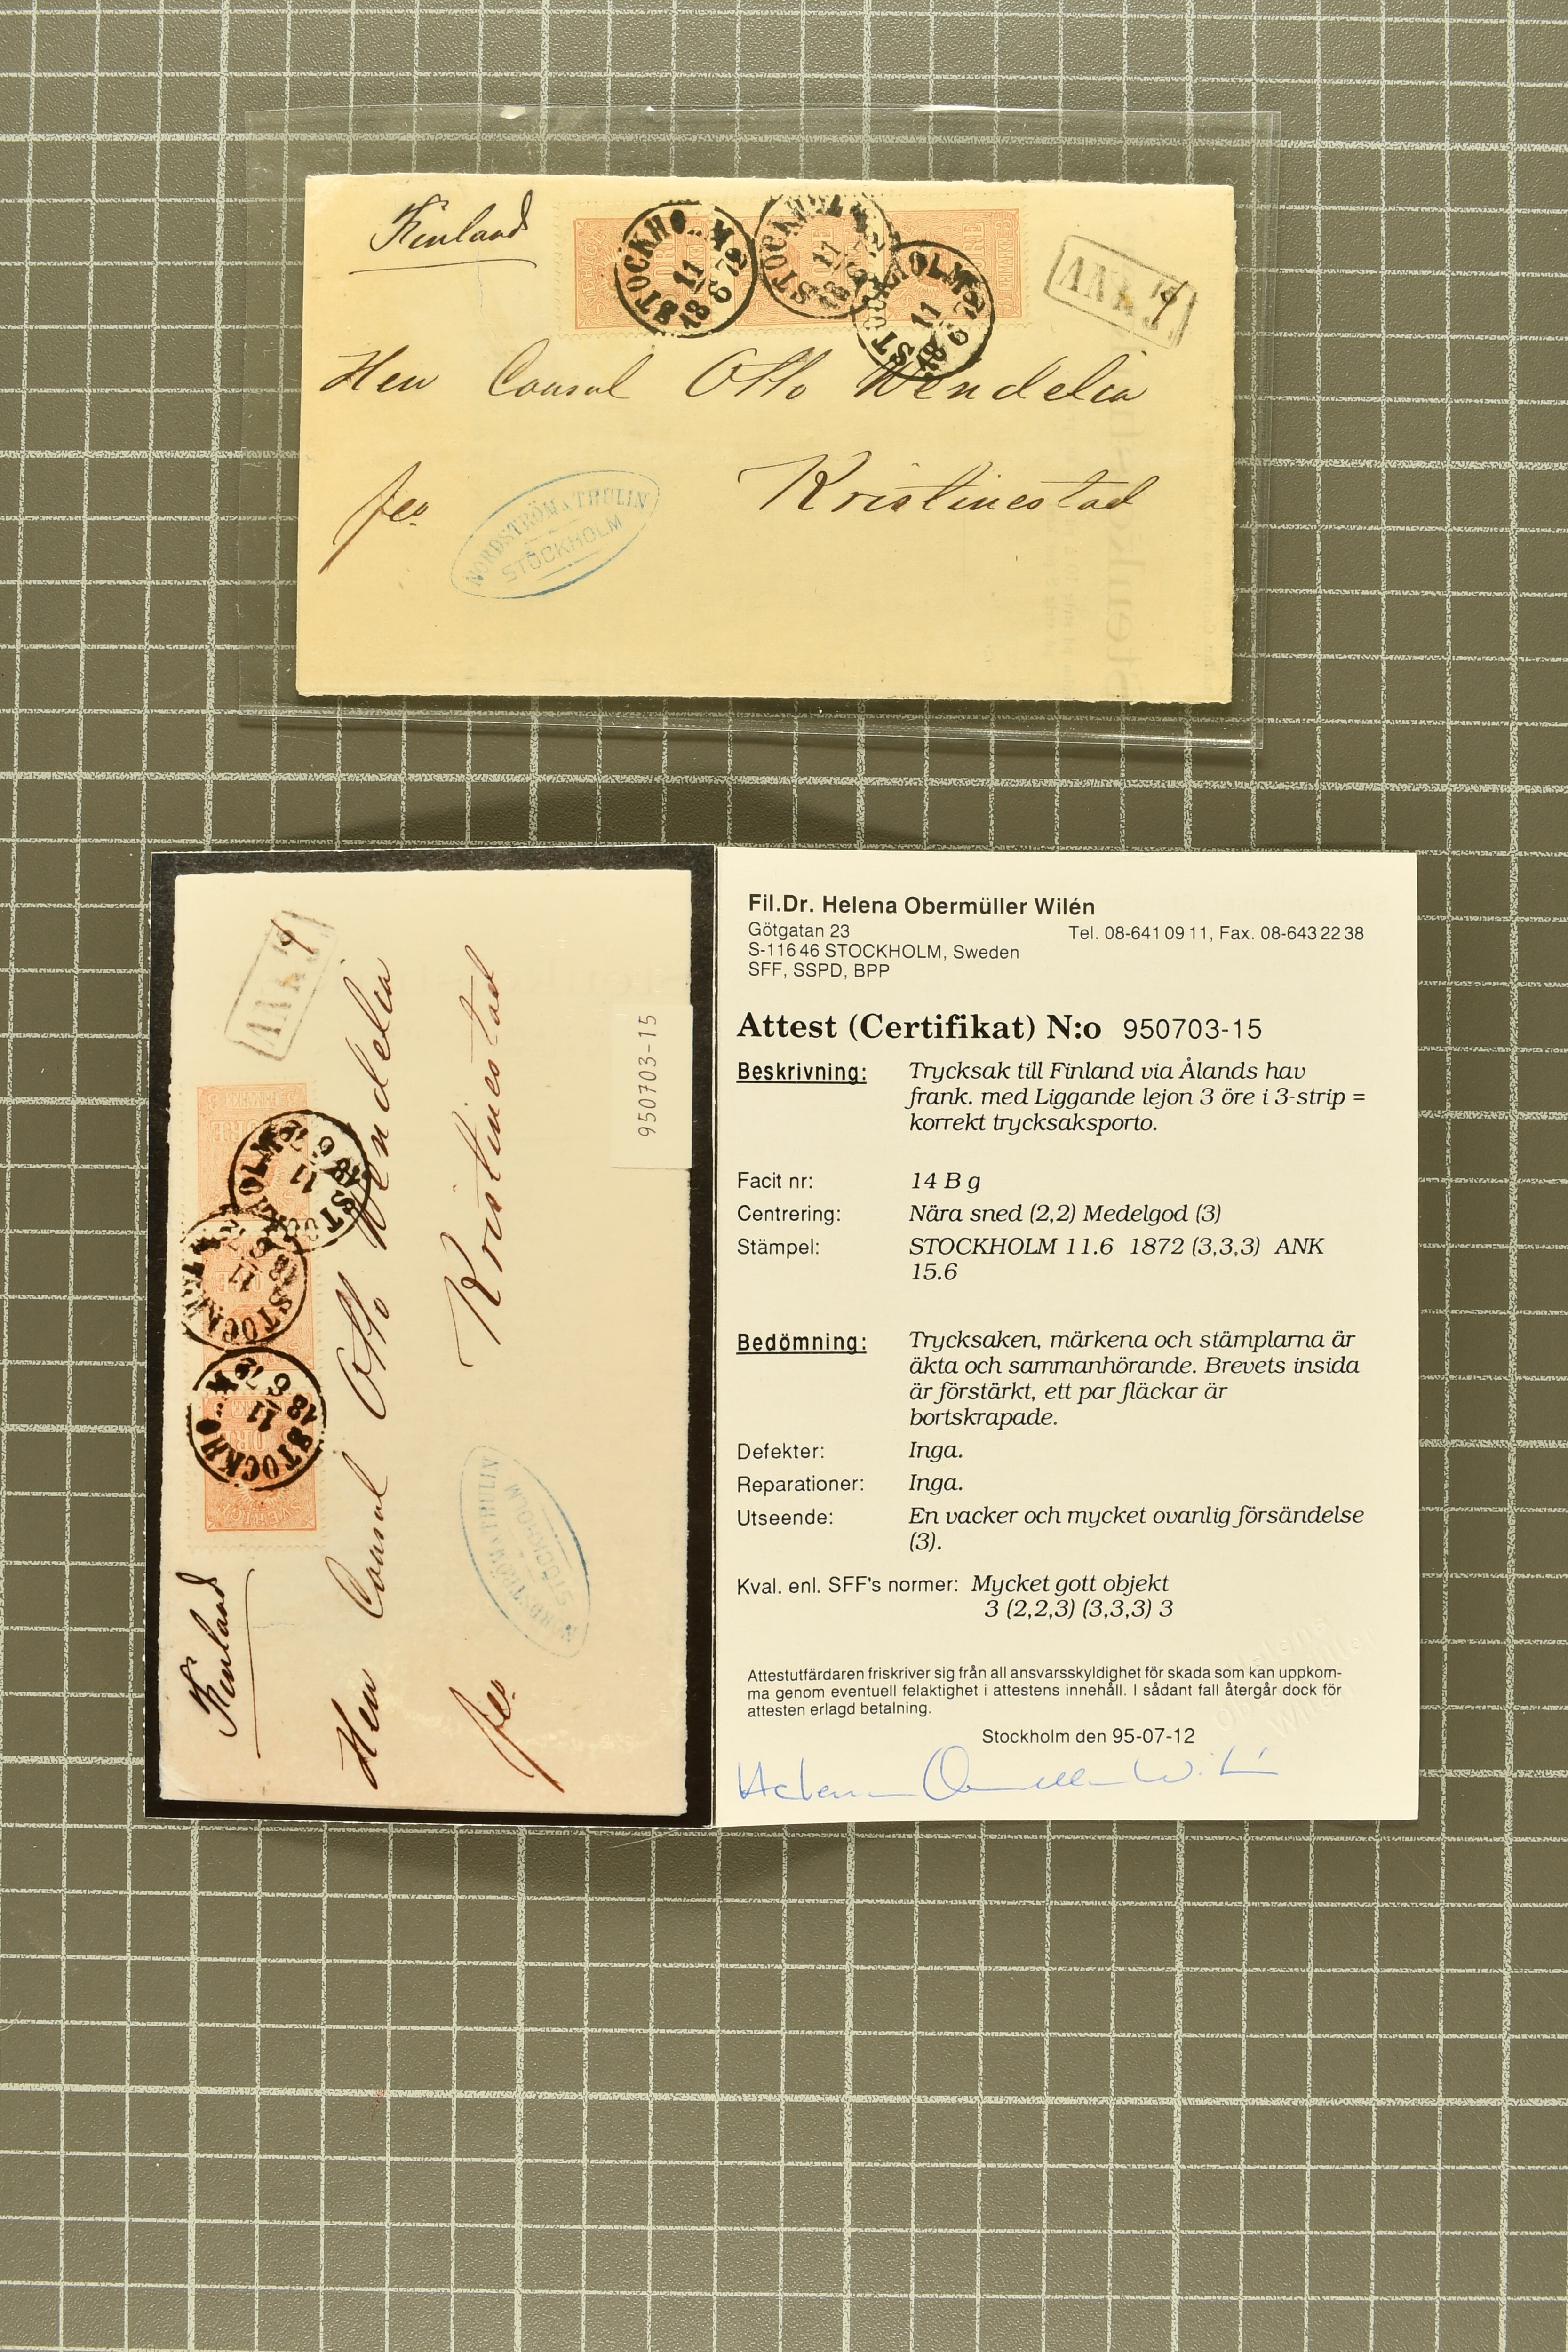 Finland
STOCKHOLM
11
6
18 72
STOCKHOLM
11
6
18 72
STOCKHOLM
11
6
18 72
ANK
Herr Consul Otto Wendelin
Kristinestad
fco
NORDSTRÖM & THULIN
STOCKHOLM
950703-15
Fil.Dr. Helena Obermüller Wilén
Götgatan 23
Tel. 08-641 09 11, Fax. 08-643 22 38
S-116 46 STOCKHOLM, Sweden
SFF, SSPD, BPP
Attest (Certifikat) N:o 950703-15
Beskrivning: Trycksak till Finland via Ålands hav
frank. med Liggande lejon 3 öre i 3-strip =
korrekt trycksaksporto.
Facit nr: 14 B g
Centrering: Nära sned (2,2) Medelgod (3)
Stämpel: STOCKHOLM 11.6 1872 (3,3,3) ANK
15.6
Bedömning: Trycksaken, märkena och stämplarna är
äkta och sammanhörande. Brevets insida
är förstärkt, ett par fläckar är
bortskrapade.
Defekter: Inga.
Reparationer: Inga.
Utseende: En vacker och mycket ovanlig försändelse
(3).
Kval. enl. SFF's normer: Mycket gott objekt
3 (2,2,3) (3,3,3) 3
Attestutfärdaren friskriver sig från all ansvarsskyldighet för skada som kan uppkom-
ma genom eventuell felaktighet i attestens innehåll. I sådant fall återgår dock för
attesten erlagd betalning.
Stockholm den 95-07-12
Helena Obermüller Wilén